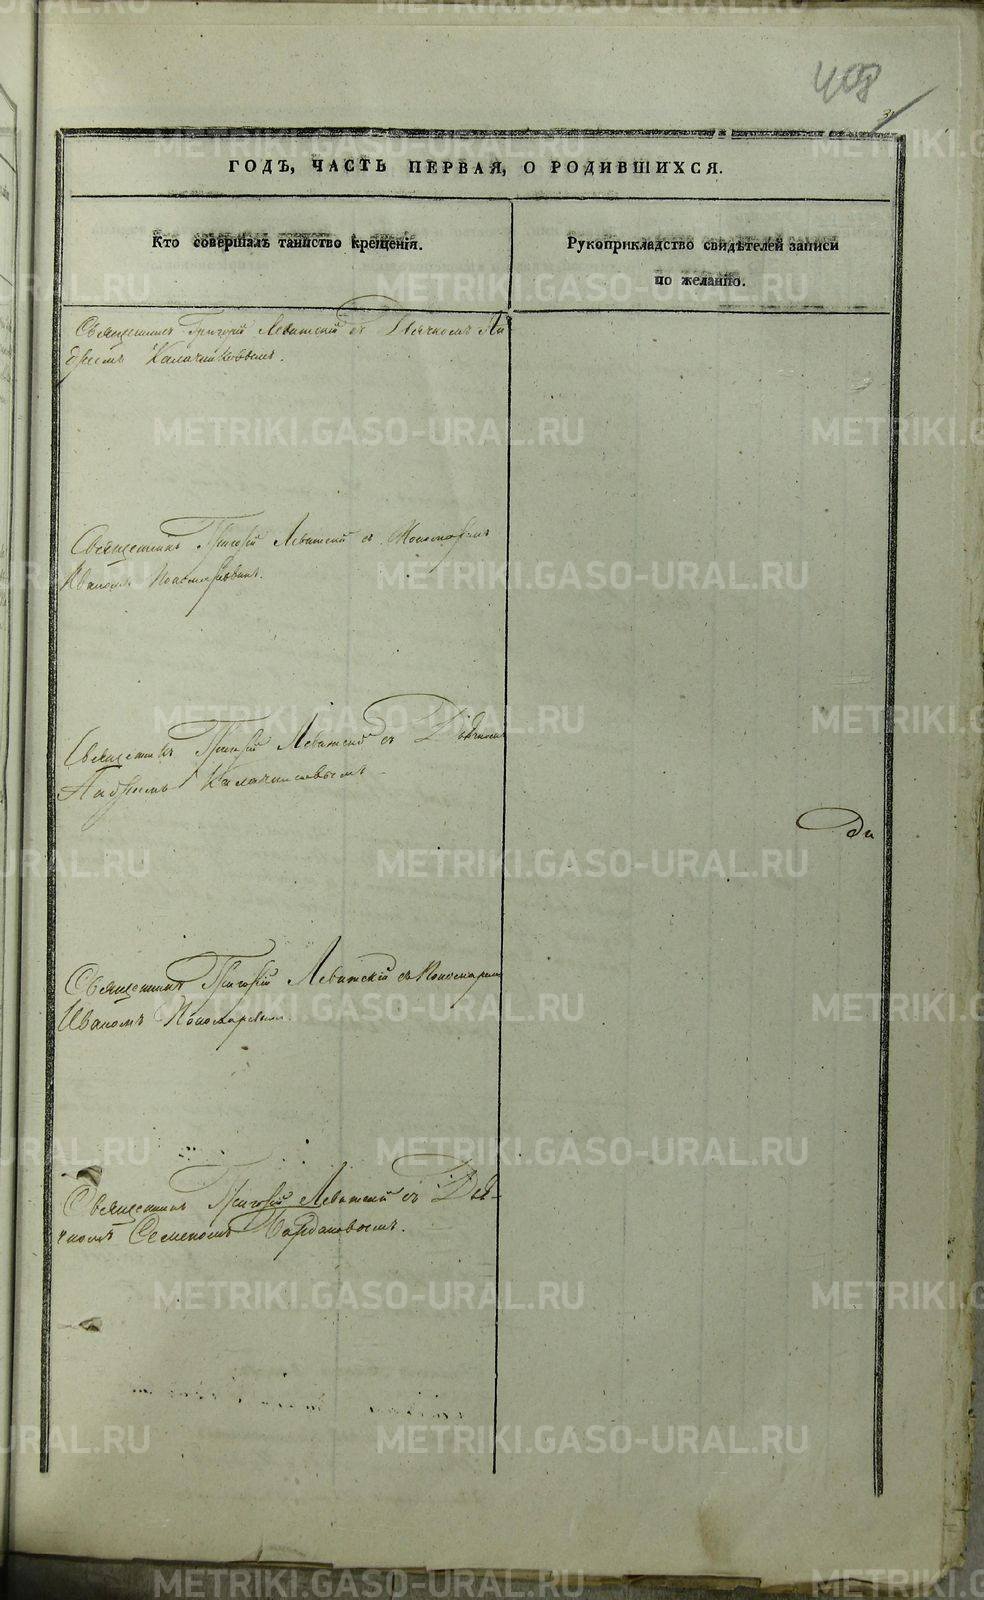 408
ГОДЪ, ЧАСТЬ ПЕРВАЯ, О РОДИВШИХСЯ.
Кто совершалъ таинство крещенія.
Рукоприкладство свидѣтелей записи
по желанію.
Священникъ Григорій Левитскій съ Дьячкомъ Ан
дреемъ Калачниковымъ.
Священникъ Григорій Левитскій съ Пономаремъ
Иваномъ Пономаревымъ.
Священникъ Григорій Левитскій съ Дьячкомъ
Андреемъ Калачниковымъ
Священникъ Григорій Левитскій съ Пономаремъ
Иваномъ Пономаревымъ.
Священникъ Григорій Левитскій съ Дья-
чкомъ Семеномъ
METRIKI.GASO-URAL.RU